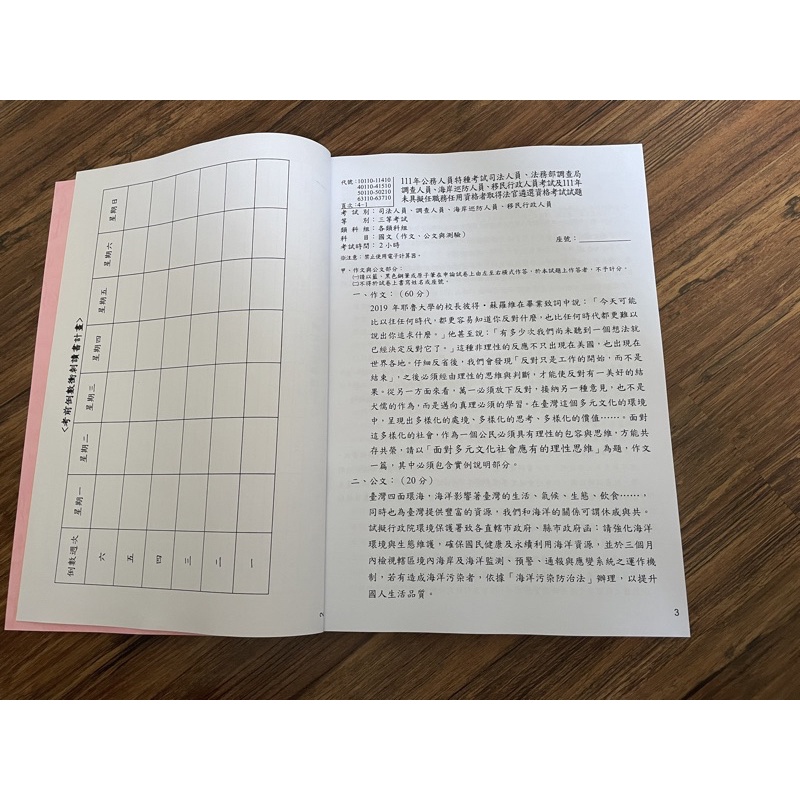 <考前倒數衝刺讀書計畫>
倒數週次 星期一 星期二 星期三 星期四 星期五 星期六 星期日
六
五
四
三
二
一
2
代號：10110-11410
40110-41510
50110-50210
63110-63710
頁次：4-1
111年公務人員特種考試司法人員、法務部調查局
調查人員、海岸巡防人員、移民行政人員考試及111年
未具擬任職務任用資格者取得法官遴選資格考試試題
考 試 別：司法人員、調查人員、海岸巡防人員、移民行政人員
等 別：三等考試
類 科 組：各類科組
科 目：國文（作文、公文與測驗）
考試時間：2 小時
座號：
※注意：禁止使用電子計算器。
甲、作文與公文部分：
㈠請以藍、黑色鋼筆或原子筆在申論試卷上由左至右橫式作答，於本試題上作答者，不予計分。
㈡不得於試卷上書寫姓名或座號。
一、作文：（60 分）
2019 年耶魯大學的校長彼得‧蘇羅維在畢業致詞中說：「今天可能
比以往任何時代，都更容易知道你反對什麼，也比任何時代都更難以
說出你追求什麼。」他甚至說：「有多少次我們尚未聽到一個想法就
已經決定反對它了。」這種非理性的反應不只出現在美國，也出現在
世界各地。仔細反省後，我們會發現「反對只是工作的開始，而不是
結束」，之後必須經由理性的思維與判斷，才能使反對有一美好的結
果。從另一方面來看，萬一必須放下反對，接納另一種意見，也不是
犬儒的作為，而是邁向真理必須的學習。在臺灣這個多元文化的環境
中，呈現出多樣化的處境、多樣化的思考、多樣化的價值……。面對
這多樣化的社會，作為一個公民必須具有理性的包容與思維，方能共
存共榮，請以「面對多元文化社會應有的理性思維」為題，作文
一篇，其中必須包含實例說明部分。
二、公文：（20 分）
臺灣四面環海，海洋影響著臺灣的生活、氣候、生態、飲食……，
同時也為臺灣提供豐富的資源，我們和海洋的關係可謂休戚與共。
試擬行政院環境保護署致各直轄市政府、縣市政府函：請強化海洋
環境與生態維護，確保國民健康及永續利用海洋資源，並於三個月
內檢視轄區境內海岸及海洋監測、預警、通報與應變系統之運作機
制，若有造成海洋污染者，依據「海洋污染防治法」辦理，以提升
國人生活品質。
3